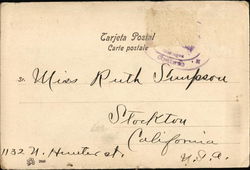 Tarjeta Postal
Carte postale
Sr. Miss Ruth Simpson
Stockton
California
1132 N. Hunter st.
U.S.A.